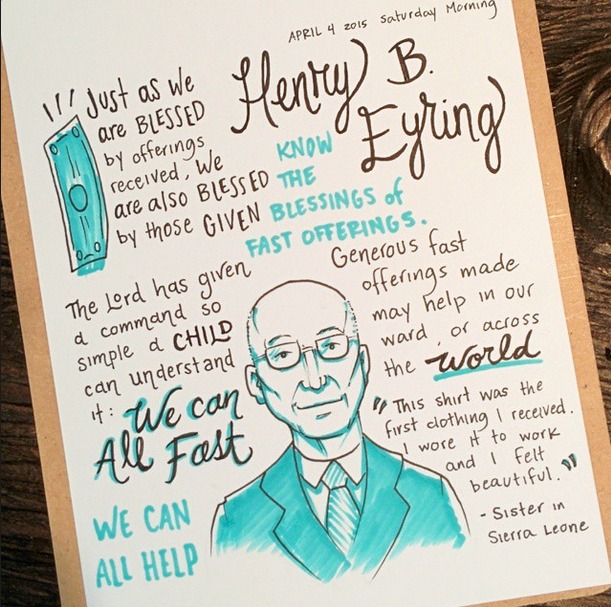 APRIL 4 2015 Saturday Morning
Henry B.
Eyring
Just as we
are BLESSED
by offerings
received, We
are also BLESSED
by those GIVEN
KNOW
THE
BLESSINGS of
FAST OFFERINGS.
The Lord has given
a command so
simple a CHILD
can understand
it: We can
All Fast
WE CAN
ALL HELP
Generous fast
offerings made
may help in our
ward, or across
the world
"This shirt was the
first clothing I received.
I wore it to work
and I felt
beautiful."
- Sister in
Sierra Leone